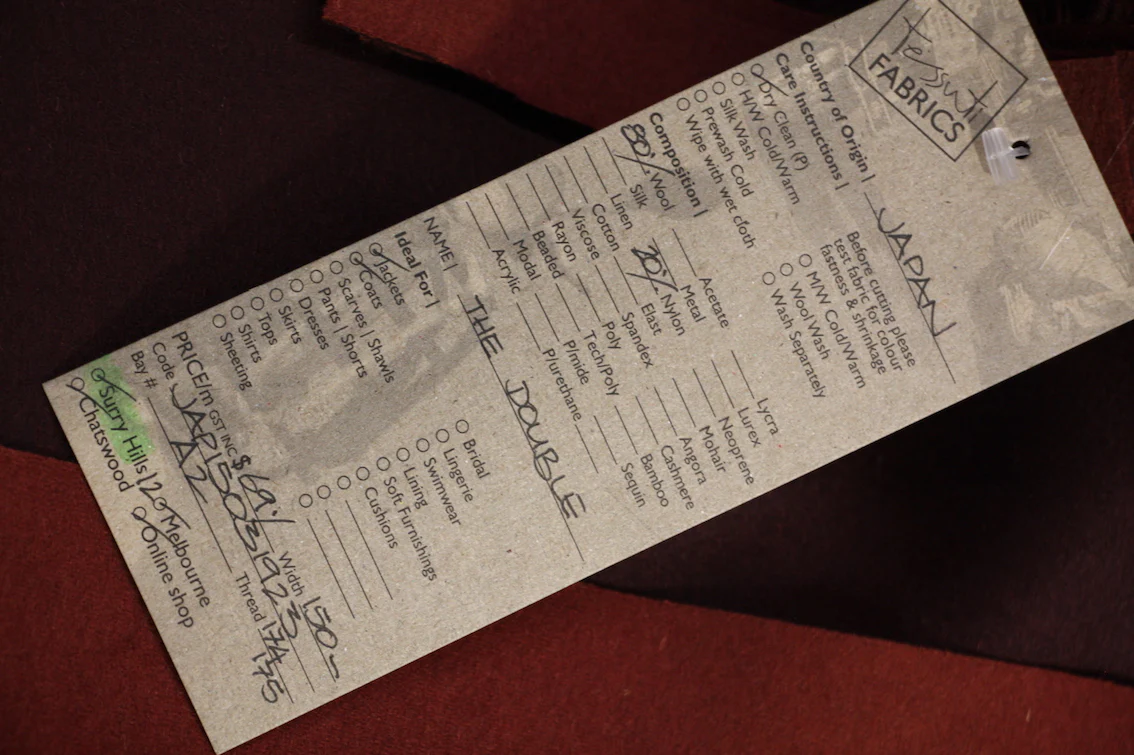 tessuti
FABRICS
Country of Origin | JAPAN
Care Instructions |
Dry Clean (P)
H/W Cold/Warm
Silk Wash
Prewash Cold
Wipe with wet cloth
Before cutting please
test fabric for colour
fastness & shrinkage
M/W Cold/Warm
Wool Wash
Wash Separately
Composition |
80% Wool
Silk
Linen
Cotton
Viscose
Rayon
Beaded
Modal
Acrylic
Acetate
Metal
20% Nylon
Elast
Spandex
Poly
Tech/Poly
P/mide
P/urethane
Lycra
Lurex
Neoprene
Mohair
Angora
Cashmere
Bamboo
Sequin
NAME | THE DOUBLE
Ideal For |
Jackets
Coats
Scarves | Shawls
Pants | Shorts
Dresses
Skirts
Tops
Shirts
Sheeting
Bridal
Lingerie
Swimwear
Lining
Soft Furnishings
Cushions
PRICE/m GST INC $69 Width 150
Code JAP15031923 Thread 174
175
Bay # A2
Surry Hills 120 Melbourne
Chatswood Online shop